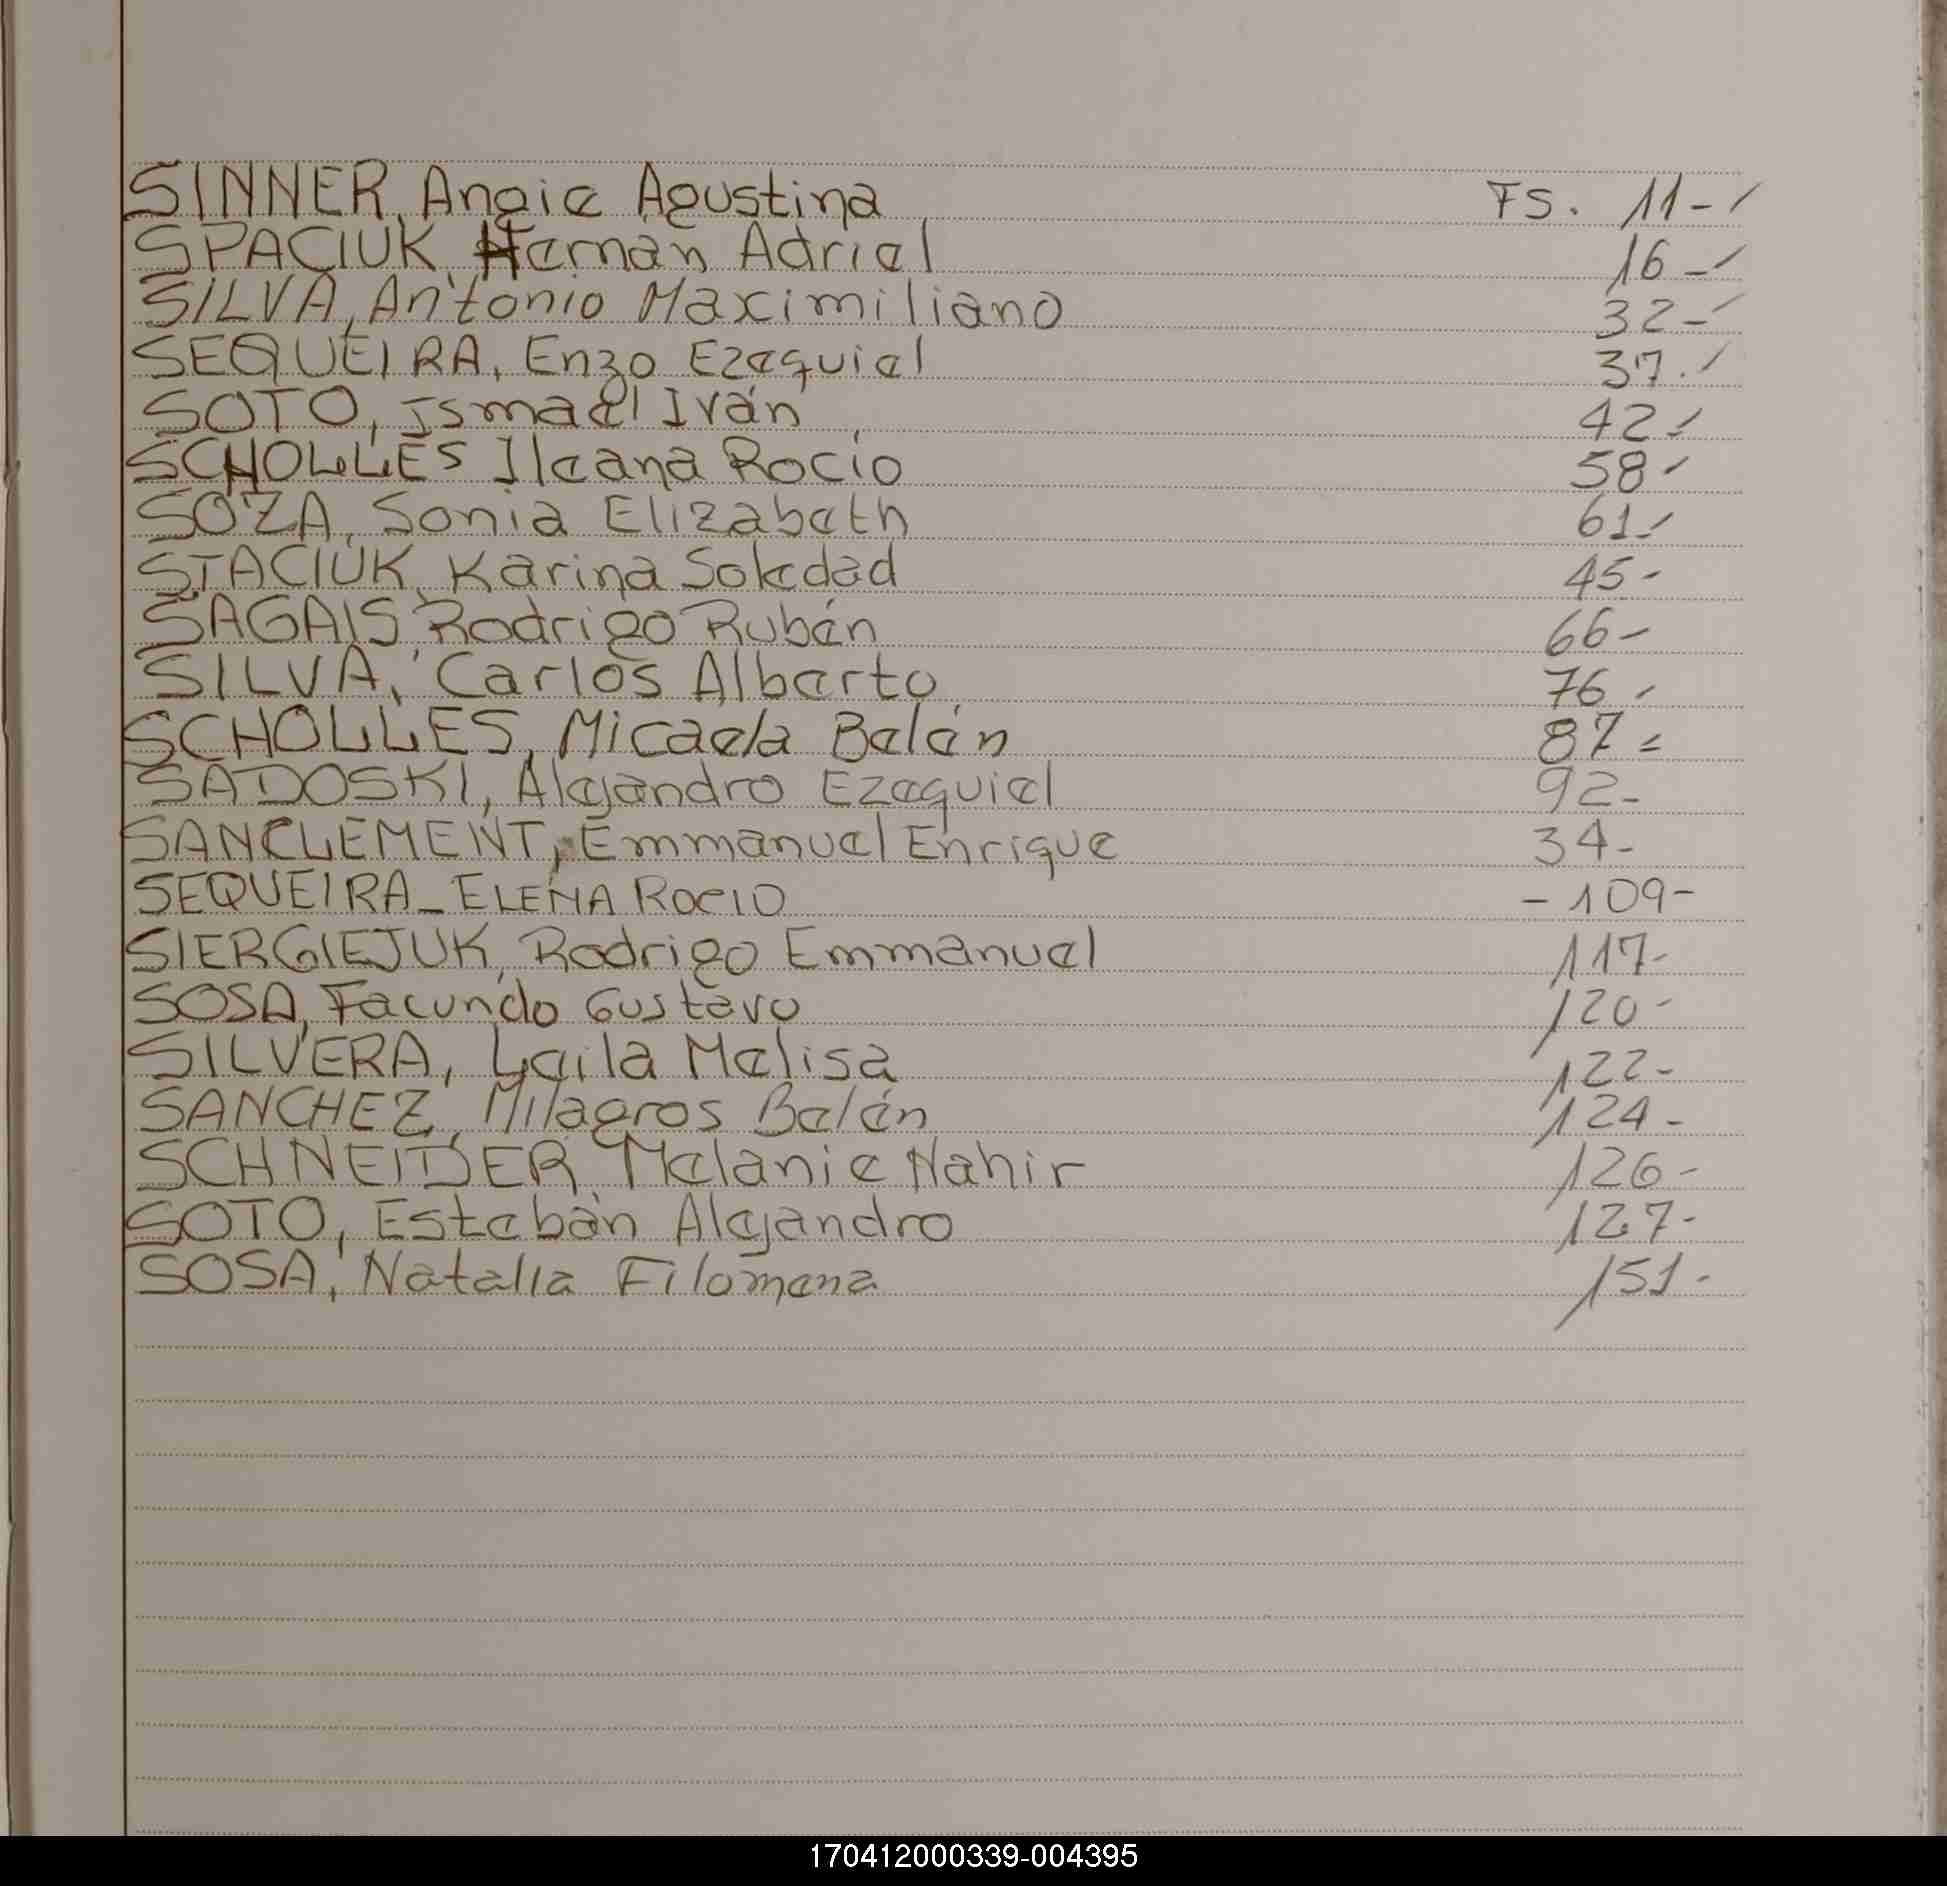 SINNER, Angie Agustina FS. 11-
SPACIUK, Hernán Adriel 16-
SILVA, Antonio Maximiliano 32-
SEQUEIRA, Enzo Ezequiel 37.
SOTO, Ismael Iván 42-
SCHOLLES Ileana Rocío 58-
SOZA, Sonia Elizabeth 61-
STACIUK, Karina Soledad 45-
SAGAIS, Rodrigo Rubén 66-
SILVA, Carlos Alberto 76-
SCHOLLES, Micaela Belén 87-
SADOSKI, Alejandro Ezequiel 92-
SANCLEMENT, Emmanuel Enrique 34-
SEQUEIRA_ ELENA ROCIO -109-
SIERGIEJUK, Rodrigo Emmanuel 117-
SOSA, Facundo Gustavo 120-
SILVERA, Laila Melisa 122-
SANCHEZ, Milagros Belén 124-
SCHNEIDER, Melanie Nahir 126-
SOTO, Esteban Alejandro 127-
SOSA, Natalia Filomena 151-
170412000339-004395